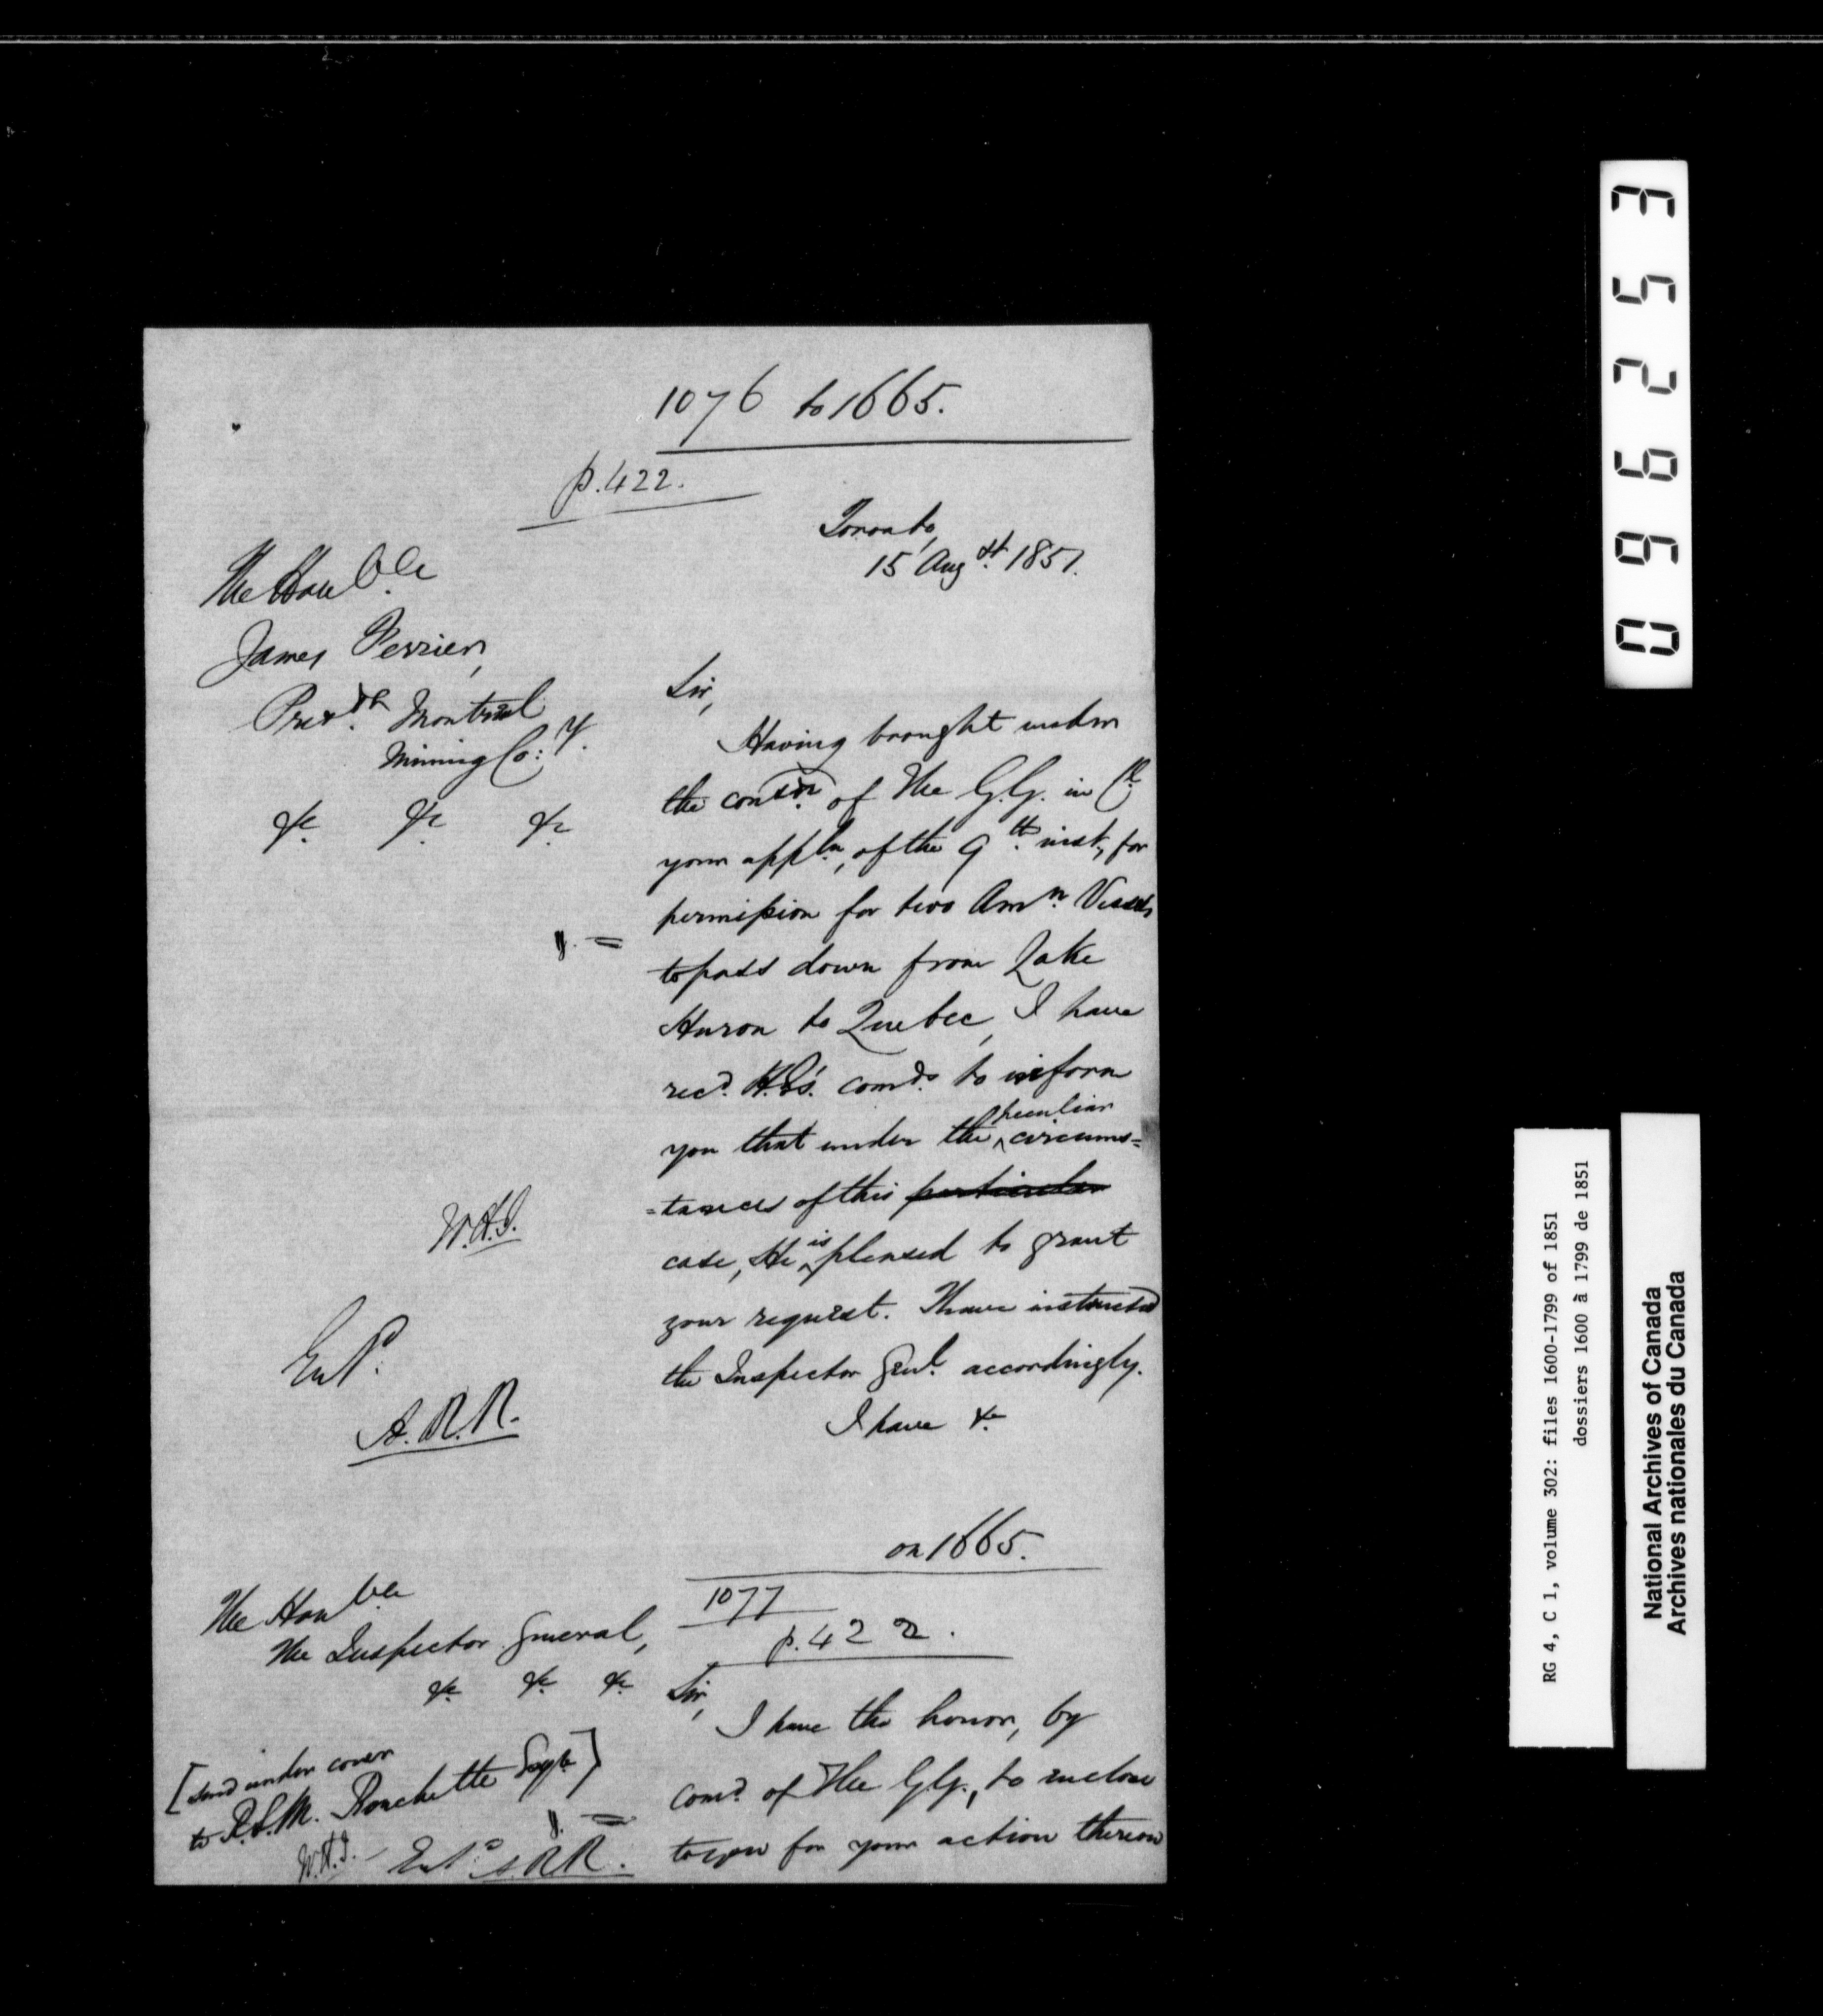 1076 to 1665.
p. 422.
Toronto,
15 Augst. 1851.
The Honble.
James Ferrier,
Presdt. Montreal
Mining Co:y.
&c. &c. &c.
Sir,
Having brought under
the consdn. of The G.G. in Cl.
your appln., of the 9th. inst., for
permission for two Amn. Vessels
to pass down from Lake
Huron to Quebec, I have
recd. H.E's. comds. to inform
you that under the peculiar circums=
=tances of this particular
case, He is pleased to grant
your request. I have instructed
the Inspector Genl. accordingly.
I have &c
W.H.J.
Entd.
A.R.R.
on 1665.
1077
p. 422.
The Honble
The Inspector General,
&c. &c. &c.
[Send under cover
to R.S.M. Bouchette Esqre]
W.H.J. Entd. A.R.R.
Sir,
I have the honor, by
comd. of The G.G., to enclose
to you for your action thereon
096253
RG 4, C 1, volume 302: files 1600-1799 of 1851
dossiers 1600 à 1799 de 1851
National Archives of Canada
Archives nationales du Canada